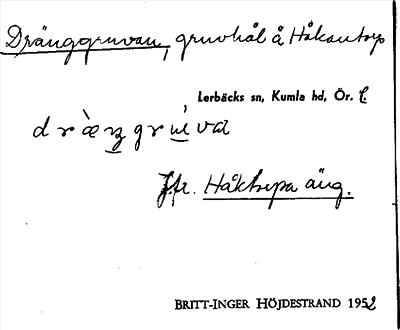 Dränggruvan, gruvhål å Håkantorp
Lerbäcks sn, Kumla hd, Ör. l.
Jfr. Håktorpa äng.
BRITT-INGER HÖJDESTRAND 1952